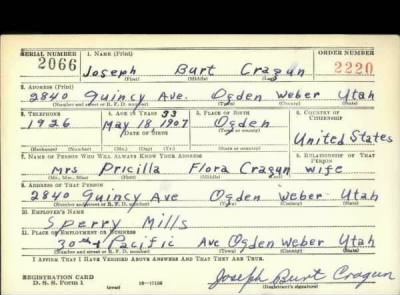 SERIAL NUMBER 1. NAME (Print) ORDER NUMBER
2066 Joseph Burt Cragun 2220
(First) (Middle) (Last)
2. ADDRESS (Print)
2840 Quincy Ave. Ogden Weber Utah
(Number and street or R. F. D. number) (Town) (County) (State)
3. TELEPHONE 4. AGE IN YEARS 33 5. PLACE OF BIRTH 6. COUNTRY OF CITIZENSHIP
1926 May 18, 1907 Ogden
DATE OF BIRTH (Town) (County)
United States
(Exchange) (Number) (Mo.) (Day) (Yr.) (State or country)
7. NAME OF PERSON WHO WILL ALWAYS KNOW YOUR ADDRESS 8. RELATIONSHIP OF THAT PERSON
Mrs Pricilla Flora Cragun wife
(Mr., Mrs., Miss) (First) (Middle) (Last)
9. ADDRESS OF THAT PERSON
2840 Quincy Ave Ogden Weber Utah
(Number and street or R. F. D. number) (Town) (County) (State)
10. EMPLOYER'S NAME
Sperry Mills
11. PLACE OF EMPLOYMENT OR BUSINESS
30th & Pacific Ave Ogden Weber Utah
(Number and street or R. F. D. number) (Town) (County) (State)
I AFFIRM THAT I HAVE VERIFIED ABOVE ANSWERS AND THAT THEY ARE TRUE.
REGISTRATION CARD
D. S. S. Form 1 (over) Joseph Burt Cragun
(Registrant's signature)